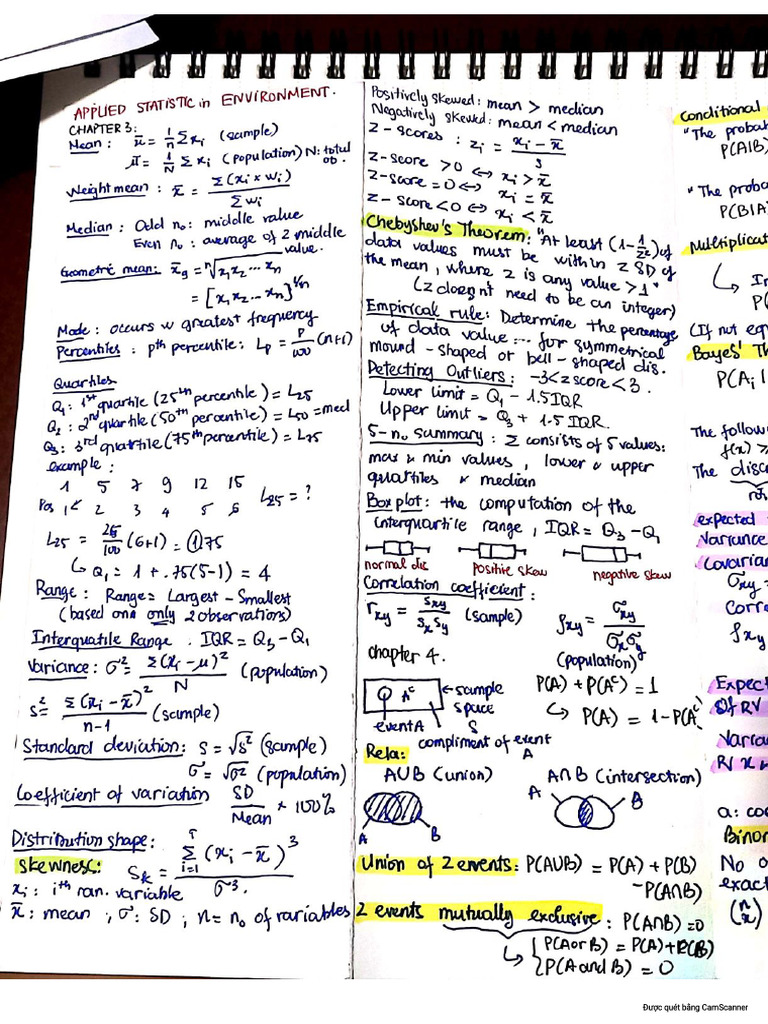 APPLIED STATISTIC in ENVIRONMENT.
CHAPTER 3:
Mean: x̄ = 1/n Σ xi (sample)
μ = 1/N Σ xi (population) N: total ob.
Weight mean: x̄ = Σ(xi × wi) / Σ wi
Median: Odd no: middle value
Even no: average of 2 middle value.
Geometric mean: x̄g = ⁿ√x1x2...xn
= [x1x2...xn]^1/n
Mode: occurs w greatest frequency
Percentiles: pth percentile: Lp = P/100 (n+1)
Quartiles
Q1: 1st quartile (25th percentile) = L25
Q2: 2nd quartile (50th percentile) = L50 = med
Q3: 3rd quartile (75th percentile) = L75
example:
1 5 7 9 12 15
Pos 1 2 3 4 5 6 L25 = ?
L25 = 25/100 (6+1) = 1.75
↳ Q1 = 1 + .75(5-1) = 4
Range: Range = Largest - Smallest
(based one only 2 observations)
Interquatile Range. IQR = Q3 - Q1
Variance: σ² = Σ(xi - μ)² / N (population)
s² = Σ(xi - x̄)² / n-1 (sample)
Standard deviation: s = √s² (sample)
σ = √σ² (population)
Coefficient of variation SD/Mean × 100%
Distribution shape:
Skewness: Sk = Σ i=1 (xi - x̄)³ / σ³.
xi: ith ran. variable
x̄: mean ; σ: SD ; n = no of variables
Positively skewed: mean > median
Negatively skewed: mean < median
Z-scores: zi = xi - x̄ / s
Z-score > 0 ⇔ xi > x̄
Z-score = 0 ⇔ xi = x̄
Z-score < 0 ⇔ xi < x̄
Chebyshev's Theorem: "At least (1 - 1/z²) of
data values must be within z SD of
the mean, where z is any value > 1"
(z doesn't need to be an integer)
Empirical rule: Determine the percentage
of data value ... for symmetrical
mound-shaped or bell-shaped dis.
Detecting Outliers: -3 < z score < 3.
Lower limit = Q1 - 1.5IQR
Upper limit = Q3 + 1.5 IQR.
5-no summary: Σ consists of 5 values:
max & min values, lower & upper
quartiles & median
Box plot: the computation of the
interquartile range, IQR = Q3 - Q1
normal dis positive skew negative skew
Correlation coefficient:
rxy = sxy / sx sy (sample) ρxy = σxy / σx σy
(population)
chapter 4.
A^c ← sample space
event A S
P(A) + P(A^c) = 1
↳ P(A) = 1 - P(A^c)
compliment of event A
Rela:
A∪B (union) A∩B (intersection)
A B A B
Union of 2 events: P(A∪B) = P(A) + P(B)
- P(A∩B)
2 events mutually exclusive: P(A∩B) = 0
↳ { P(A or B) = P(A) + P(B)
P(A and B) = 0
Conditional
"The probab
P(A|B)
"The proba
P(B|A
Multiplicat
↳ In
P(
(If not equ
Bayes' T
P(Ai |
The follow
f(x) ≥
The disc
expected
Variance
Covarian
σxy =
Corre
ρxy
Expect
of RV
Varian
RV x
a: coe
Binom
No o
exact
(n x)
Được quét bằng CamScanner